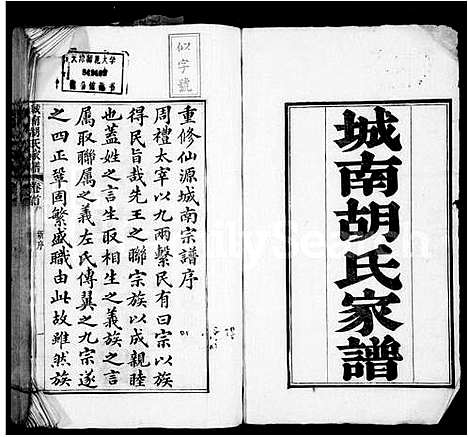 城南胡氏家譜
似字號
重修仙源城南宗譜序
周禮太宰以九兩繫民有曰宗以族
得民旨哉先王之聯宗族以成親睦
也蓋姓之言生取相生之義族之言
屬取聯屬之義左氏傳翼之九宗遂
之四正鞏固繁盛職由此故雖然族
城南胡氏家譜 卷首
新序